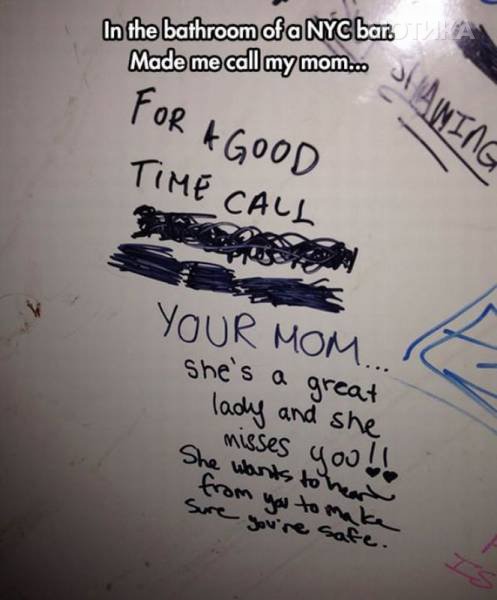 In the bathroom of a NYC bar.
Made me call my mom...
FOR A GOOD
TIME CALL
YOUR MOM...
she's a great
lady and she
misses you!!
She wants to hear
from you to make
sure you're safe.